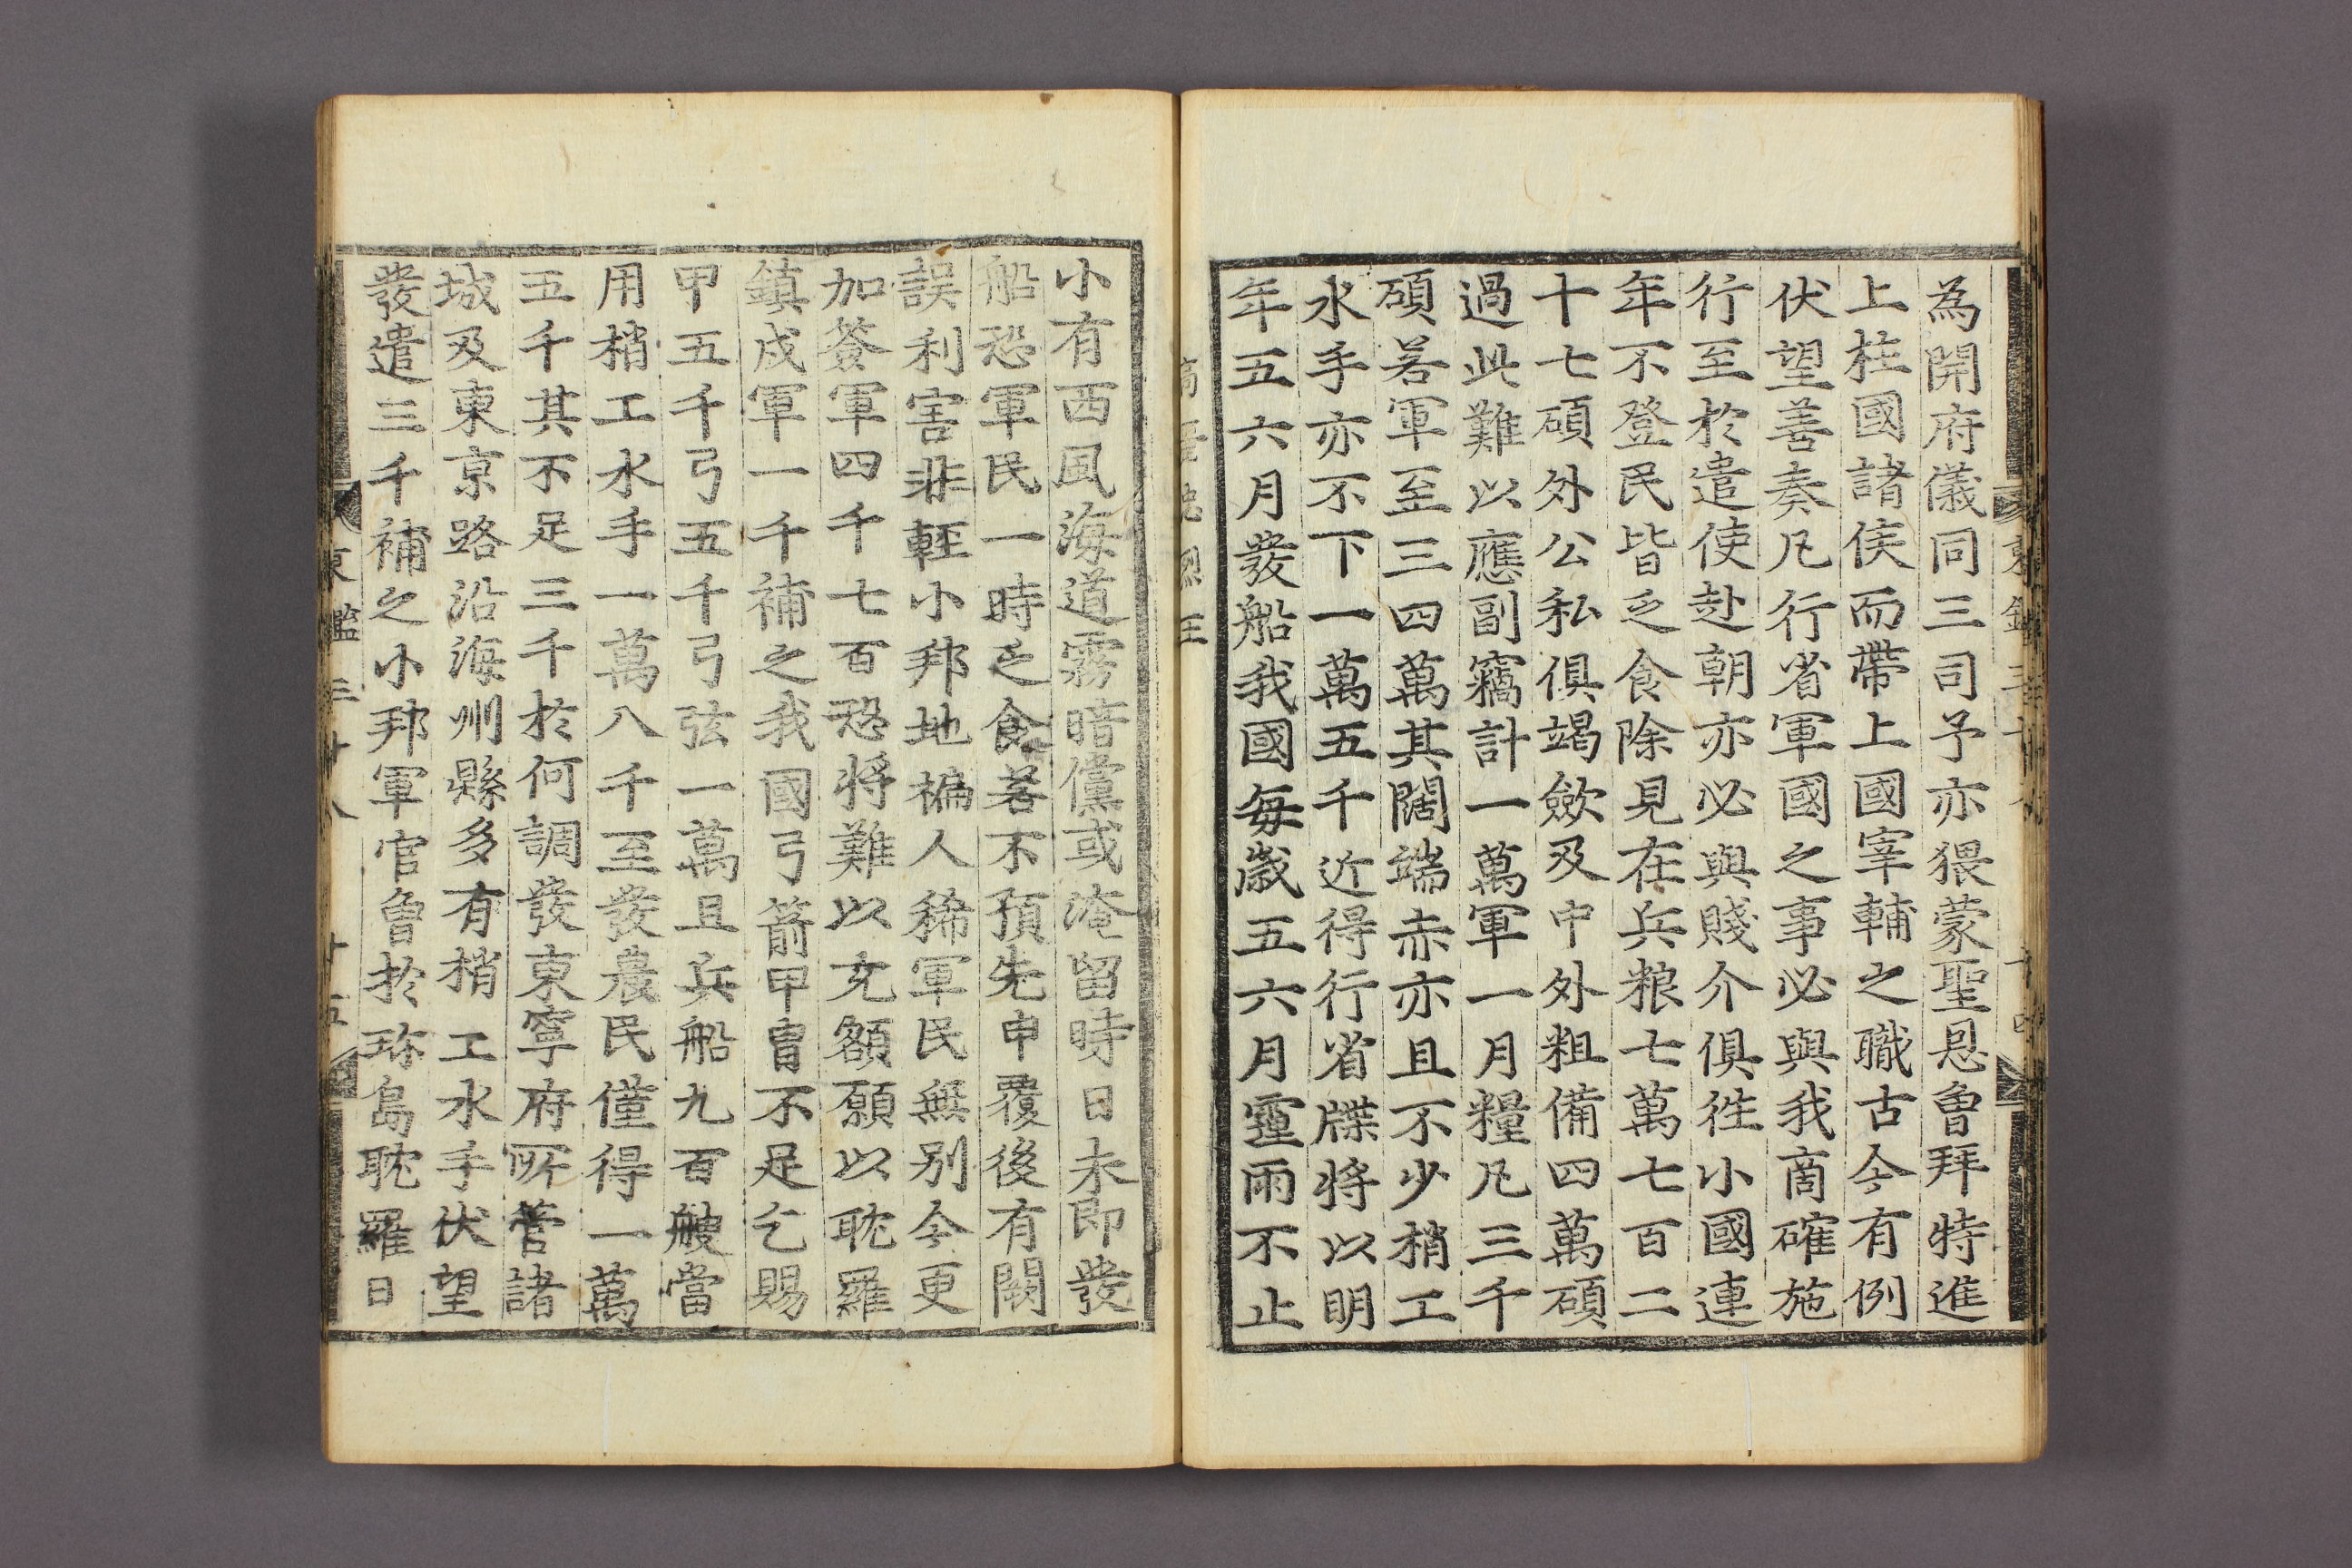 為開府儀同三司予亦猥蒙聖恩曾拜特進
上柱國諸侯而帶上國宰輔之職古今有例
伏望善奏凡行省軍國之事必與我啇確施
行至於遣使赴朝亦必與賤介俱徃小國連
年不登民皆乏食除見在兵粮七萬七百二
十七碩外公私俱竭歛及中外粗備四萬碩
過此難以應副竊計一萬軍一月糧凡三千
碩若軍至三四萬其闊端赤亦且不少梢工
水手亦不下一萬五千近得行省牒將以明
年五六月發船我國每歲五六月霔雨不止
小有西風海道霧暗儻或淹留時日未即發
船恐軍民一時乏食若不預先申覆後有闕
誤利害非輕小邦地褊人稀軍民無别今更
加簽軍四千七百恐將難以充額願以耽羅
鎮戍軍一千補之我國弓箭甲冑不足乞賜
甲五千弓五千弓弦一萬且兵船九百艘當
用梢工水手一萬八千至發農民僅得一萬
五千其不足三千於何調發東寧府所管諸
城及東京路沿海州縣多有梢工水手伏望
發遣三千補之小邦軍官曾於珎島耽羅日
東鑑三十八 十五